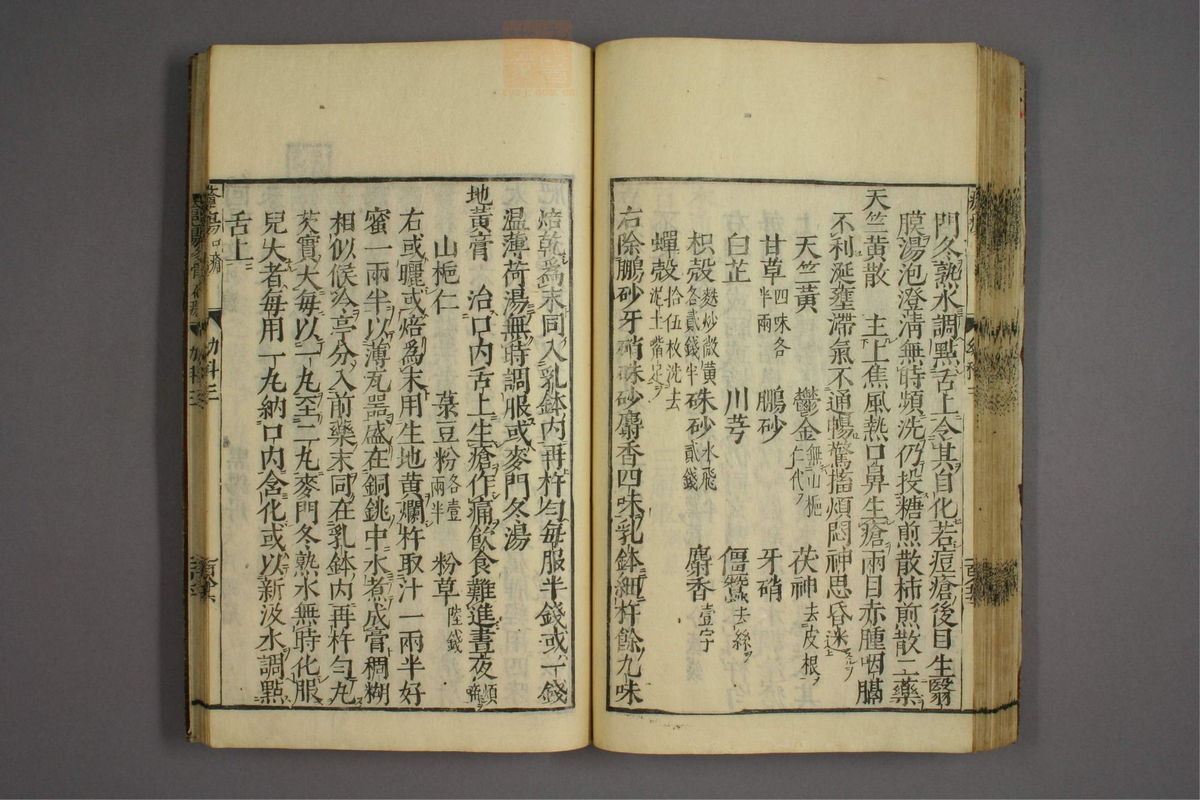 門冬熟水調點舌上令其自化若痘瘡後目生翳
膜湯泡澄淸無時頻洗仍投糖煎散柿煎散二藥
天竺黃散 主上焦風熱口鼻生瘡兩目赤腫咽膈
不利涎壅滯氣不通暢驚搐煩悶神思昏迷
天竺黃 鬱金無山梔仁代 茯神去皮根
甘草四味各半兩 鵬砂 牙硝
白芷 川芎 僵蠶去絲
枳殼麩炒微黃各貳錢半 朱砂水飛貳錢 麝香壹字
蟬殼拾伍枚洗去泥土嘴足
右除鵬砂牙硝硃砂麝香四味乳鉢細杵餘九味
焙乾爲末同入乳鉢內再杵勻每服半錢或一錢
温薄荷湯無時調服或麥門冬湯
地黃膏 治口內舌上生瘡作痛飲食難進晝夜煩啼
山梔仁 菉豆粉各壹兩半 粉草陸錢
右或曬或焙爲末用生地黃爛杵取汁一兩半好
蜜一兩半以薄瓦器盛在銅銚中水煮成膏稠糊
相似候冷亭分入前藥末同在乳鉢內再杵勻丸
芡實大每以一丸至二丸麥門冬熟水無時化服
兒大者每用一丸納口內含化或以新汲水調點
舌上
幼科三